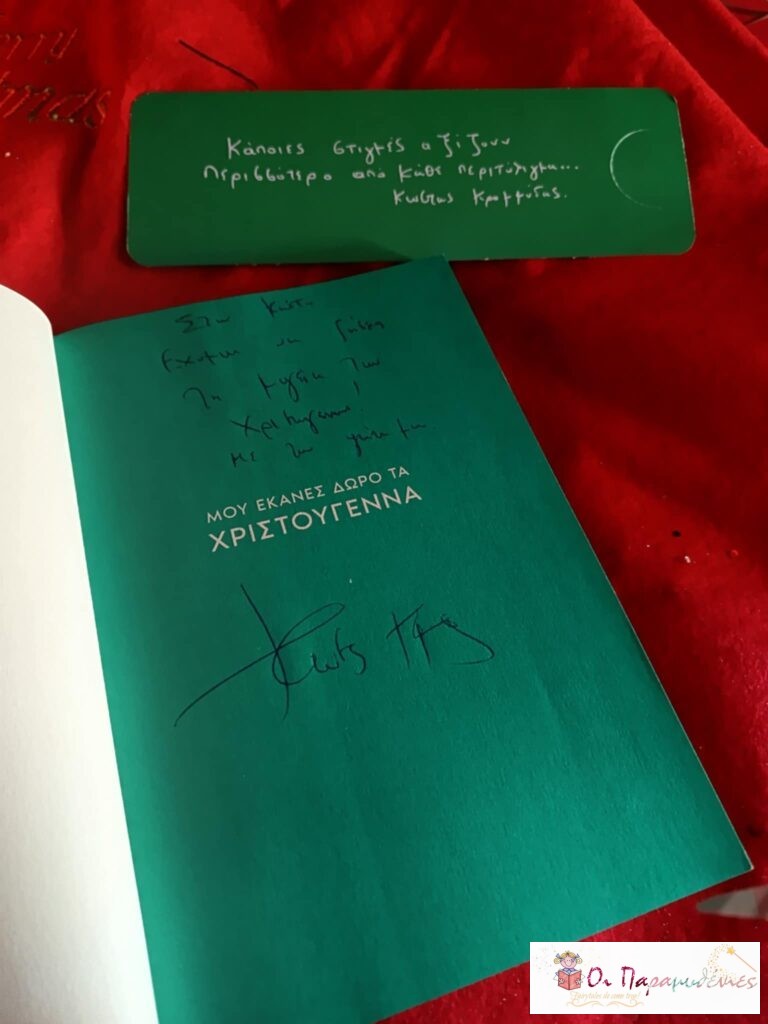 rry
tmas
Κάποιες στιγμές αξίζουν
περισσότερο από κάθε περιτύλιγμα...
Κώστας Κρομμύδας.
Στον Κώστα
Εύχομαι να ζήσεις
τη μαγεία των
Χριστουγέννων!
Με την αγάπη μου
ΜΟΥ ΕΚΑΝΕΣ ΔΩΡΟ ΤΑ
ΧΡΙΣΤΟΥΓΕΝΝΑ
Οι Παραμυθένιες